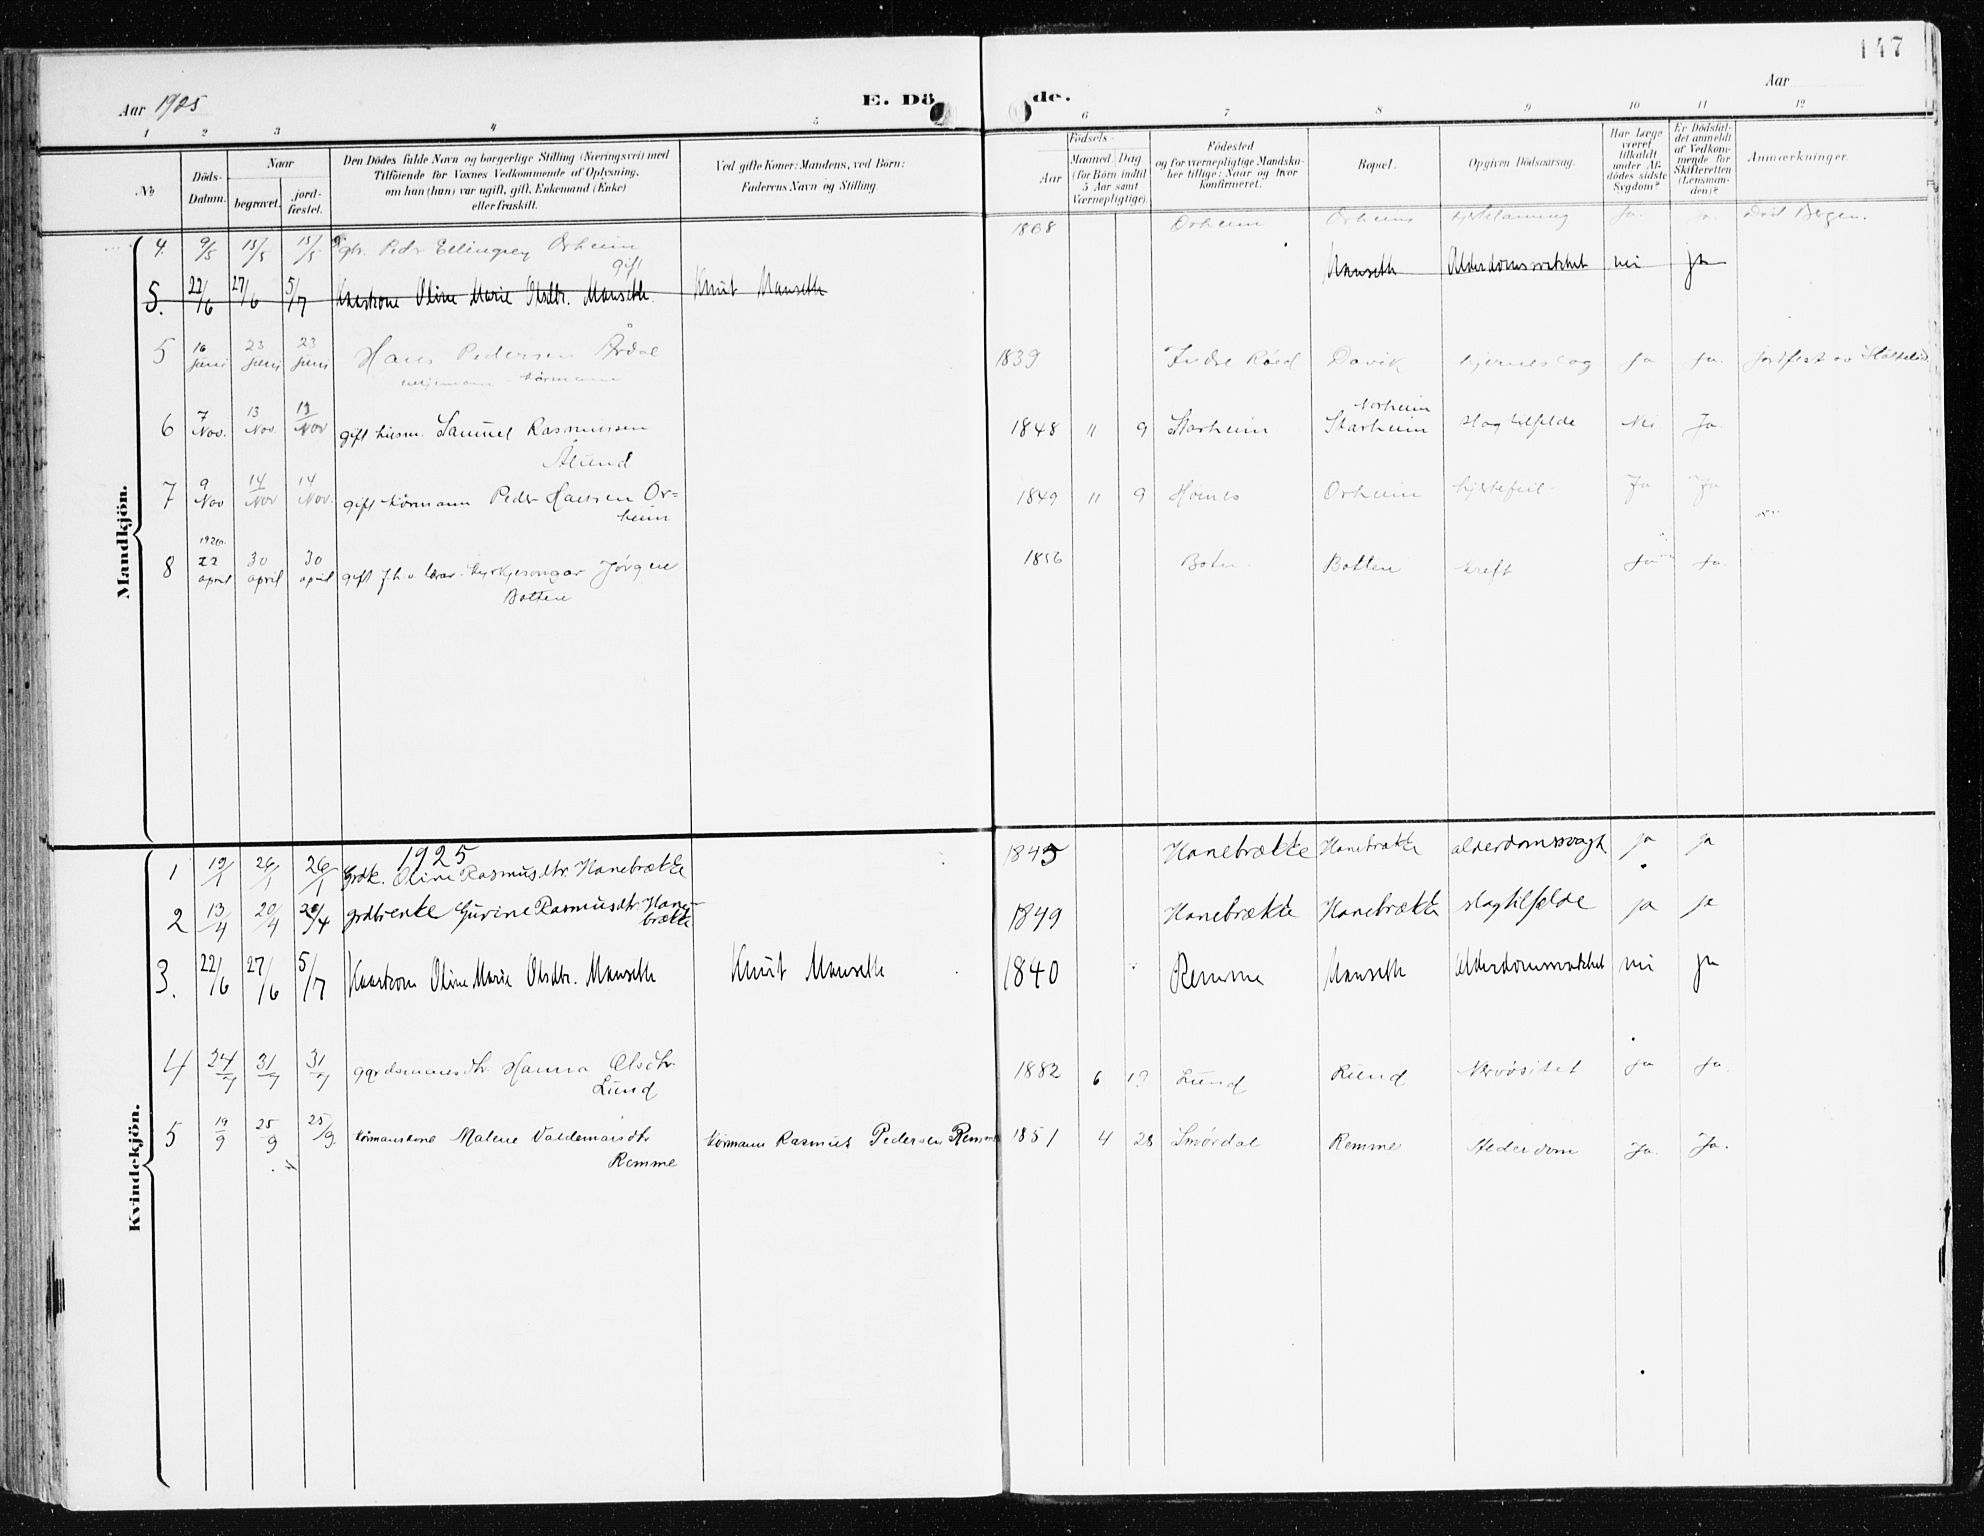 147
Aar 1925
E. Dö
de.
Aar
1 2 3 4 5 6 7 8 9 10 11 12
No
Döds-Datum.
Naar
begravet.
jord-fæstet.
Den Dödes fulde Navn og borgerlige Stilling (Næringsvei) med
Tilföiende for Voxnes Vedkommende af Oplysning,
om han (hun) var ugift, gift, Enkemand (Enke)
eller fraskilt.
Ved gifte Koner: Mandens, ved Börn:
Faderens Navn og Stilling.
Födsels-
Aar
Maaned Dag
(for Börn indtil
5 Aar samt
Værnepligtige).
Födested
og for værnepligtige Mandska-
ber tillige: Naar og hvor
konfirmeret.
Bopæl.
Opgiven Dödsaarsag.
Har Læge
været
tilkaldt
under Af-
dödes sidste
Sygdom?
Er Dödsfal-
det anmeldt
af Vedkom-
mende for
Skifteretten
(Lensman-
den)?
Anmærkninger.
Mandkjön.
4. 9/5 15/5 15/5 Peder Ellingsen Orheim 1868 Orheim Orheim ja. Död Bergen.
gift
5. 22/6 27/6 5/7 Kaarkone Oline Marie Olsdtr. Manseth Knut Manseth Manseth Alderdomssvakhet nei ja
5 16 juni 23 juni 23 juni Hans Pedersen Årdal 1839 Indre Davik ja ja. jordfest av
kårmann
6 7 Nov. 13 Nov. 13 Nov gift husm. Samuel Rasmussen 1848 11 9 Starheim Starheim slagtilfelde Nei Ja.
Ålund
7 9 Nov 14 Nov 14 Nov. gift kårmann Peder Hansen Or= 1849 11 9 Hornes Orheim hjertefeil Ja Ja
heim
8 1926 22 april 30 april 30 april gift f.h.v. lærar kyrkjesongar Jørgen 1856 Boten Botten kreft Ja Ja.
Botten
Kvindekjön.
1925
1 19/1 26/1 26/1 Grdk. Oline Rasmusdtr. Hanebrække 1845 Hanebrække Hanebrække alderdomssvagh. ja ja
2 13/4 20/4 20/4 grdbrenke Gurine Rasmusdtr. Hane- 1849 Hanebrække Hanebrække slagtilfælde ja ja
brække
3. 22/6 27/6 5/7 Kaarkone Oline Marie Olsdtr. Manseth Knut Manseth 1840 Remme Manseth Alderdomssvakhet nei ja
4 24/7 31/7 31/7 gardmannsdtr. Hanna Olsdtr. 1882 6 19 Lund Lund Nervøsitet ja ja.
Lund
5 19/9 25/9 25/9 kårmannskone Malene Valdemarsdtr Kårmann Rasmus Pedersen Remme 1851 4 28 Smørdal Remme Alderdom Ja. Ja.
Remme